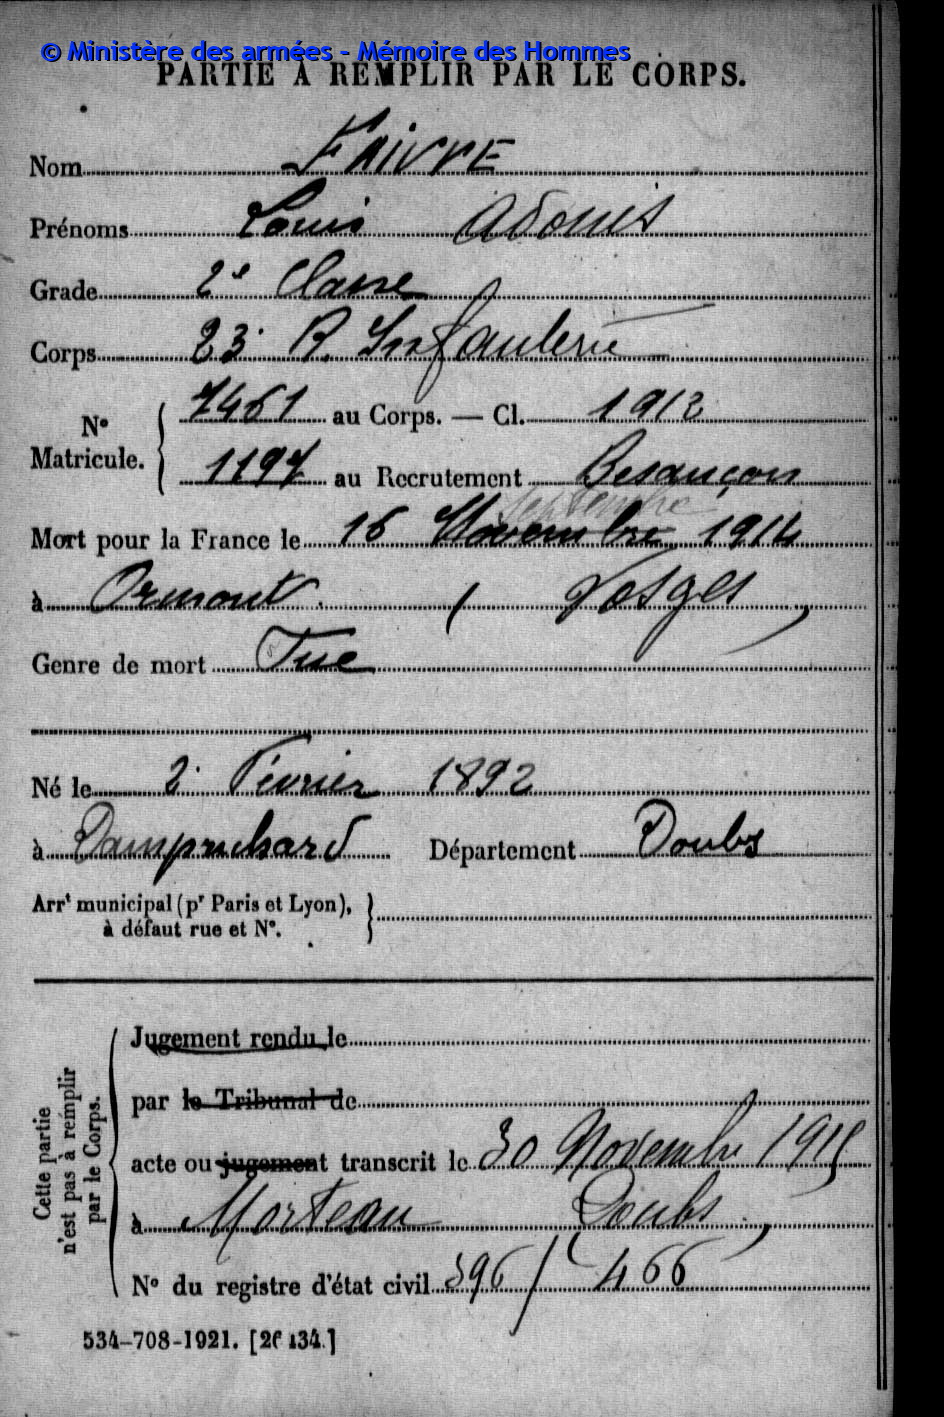 © Ministère des armées - Mémoire des Hommes
PARTIE À REMPLIR PAR LE CORPS.
Nom FAIVRE
Prénoms Louis Adonis
Grade 2e Classe
Corps 23. R. Infanterie
N° Matricule. 7461 au Corps. — Cl. 1912
1197 au Recrutement Besançon
septembre
Mort pour la France le 16 Novembre 1914
à Ormont. ( Vosges,
Genre de mort Tué
Né le 2. Février 1892
à Damprichard Département Doubs
Arrt municipal (pr Paris et Lyon),
à défaut rue et N°.
Cette partie n'est pas à remplir par le Corps.
Jugement rendu le
par le Tribunal de
acte ou jugement transcrit le 30 Novembre 1915
à Morteau Doubs,
N° du registre d'état civil 396 / 466
534-708-1921. [26434.]